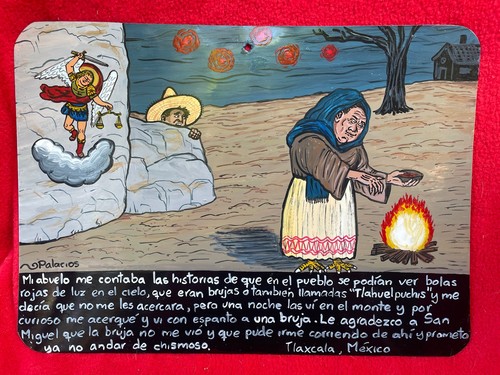 Palacios
Mi abuelo me contaba las historias de que en el pueblo se podían ver bolas
rojas de luz en el cielo, que eran brujas o también llamadas "Tlahuelpuchis" y me
decía que no me les acercara, pero una noche las ví en el monte y por
curioso me acerqué y ví con espanto a una bruja. Le agradezco a San
Miguel que la bruja no me vió y que pude irme corriendo de ahí y prometo
ya no andar de chismoso. Tlaxcala, México